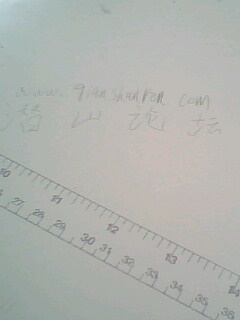 www.qianshanren.com
潜山论坛
10 11 12 13 14
27 28 29 30 31 32 33 34 35 36